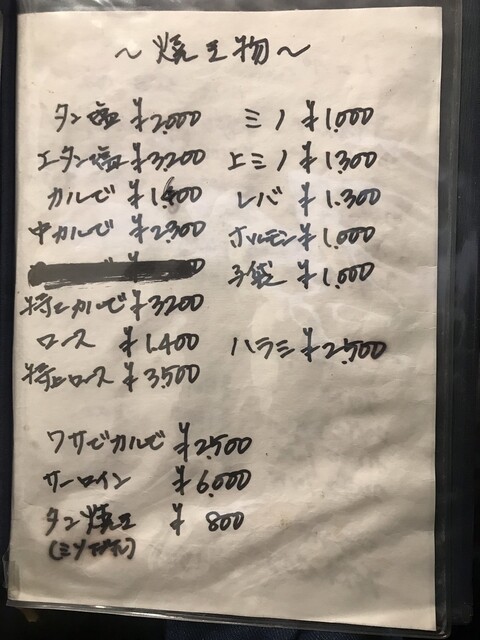 ～焼き物～
タン塩 ¥2,000
上タン塩 ¥3,200
カルビ
中カルビ ¥2,300
特上カルビ ¥3,200
ロース ¥1,400
特上ロース ¥3,500
ミノ ¥1,000
上ミノ ¥1,300
レバ ¥1,300
ホルモン ¥1,000
子袋 ¥1,000
ハラミ ¥2,500
ワサビカルビ ¥2,500
サーロイン ¥6,000
タン焼き ¥800